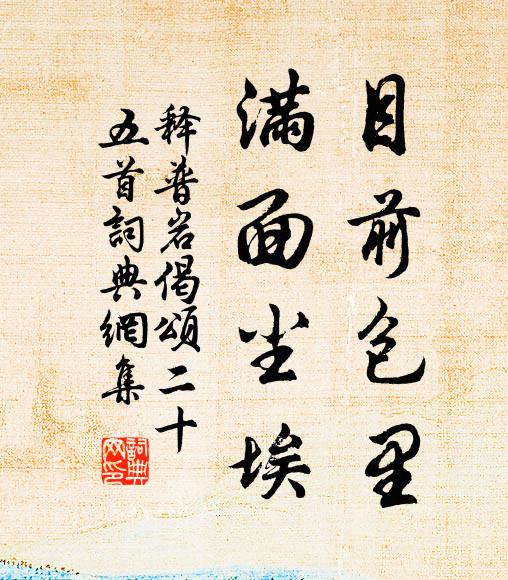 目前包里
满面尘埃
释普岩偈颂二十
五首词典网集
詞典
网印